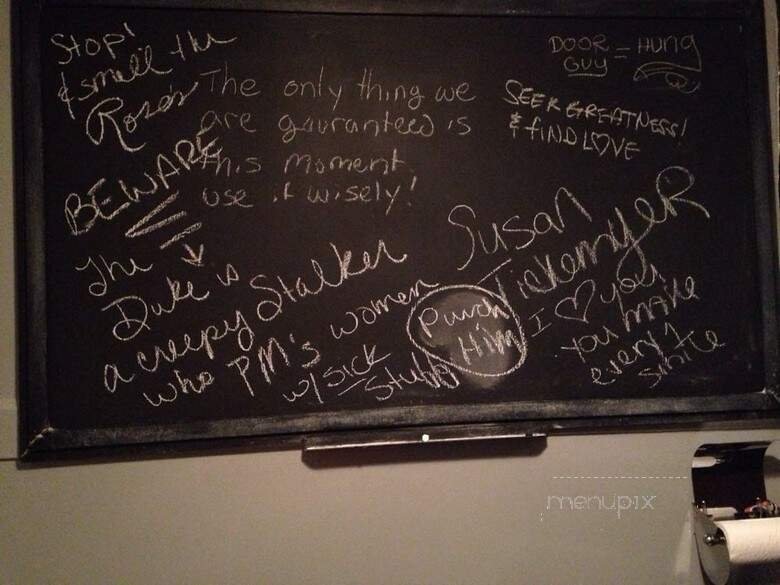 Stop!
& smell the
Roses
The only thing we
are gauranteed is
this moment,
use it wisely!
DOOR = HUNG
GUY
SEEK GREATNESS!
& FIND LOVE
BEWARE
The
Duke is
a creepy Stalker
who PM's women
w/ sick
stuff
Punch
Him
Susan
I ♡ you
you make
every1
smile
menupix